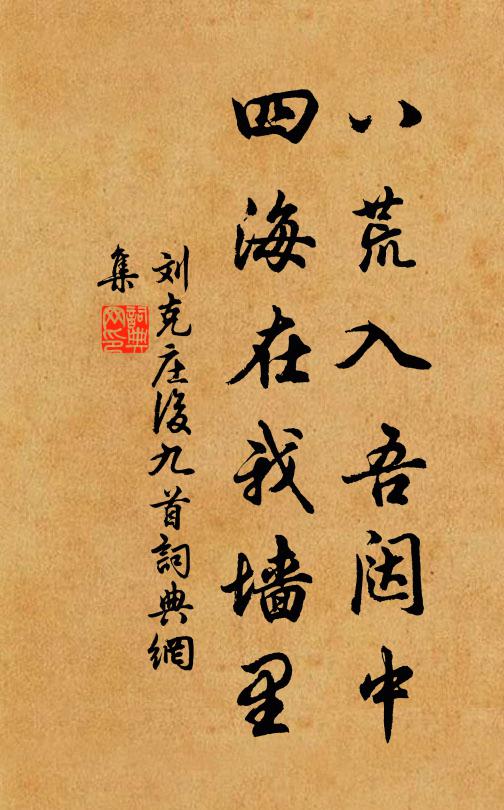 八荒入吾闼中
四海在我墙里
刘克庄後九首詞典網
集
詞典
网印